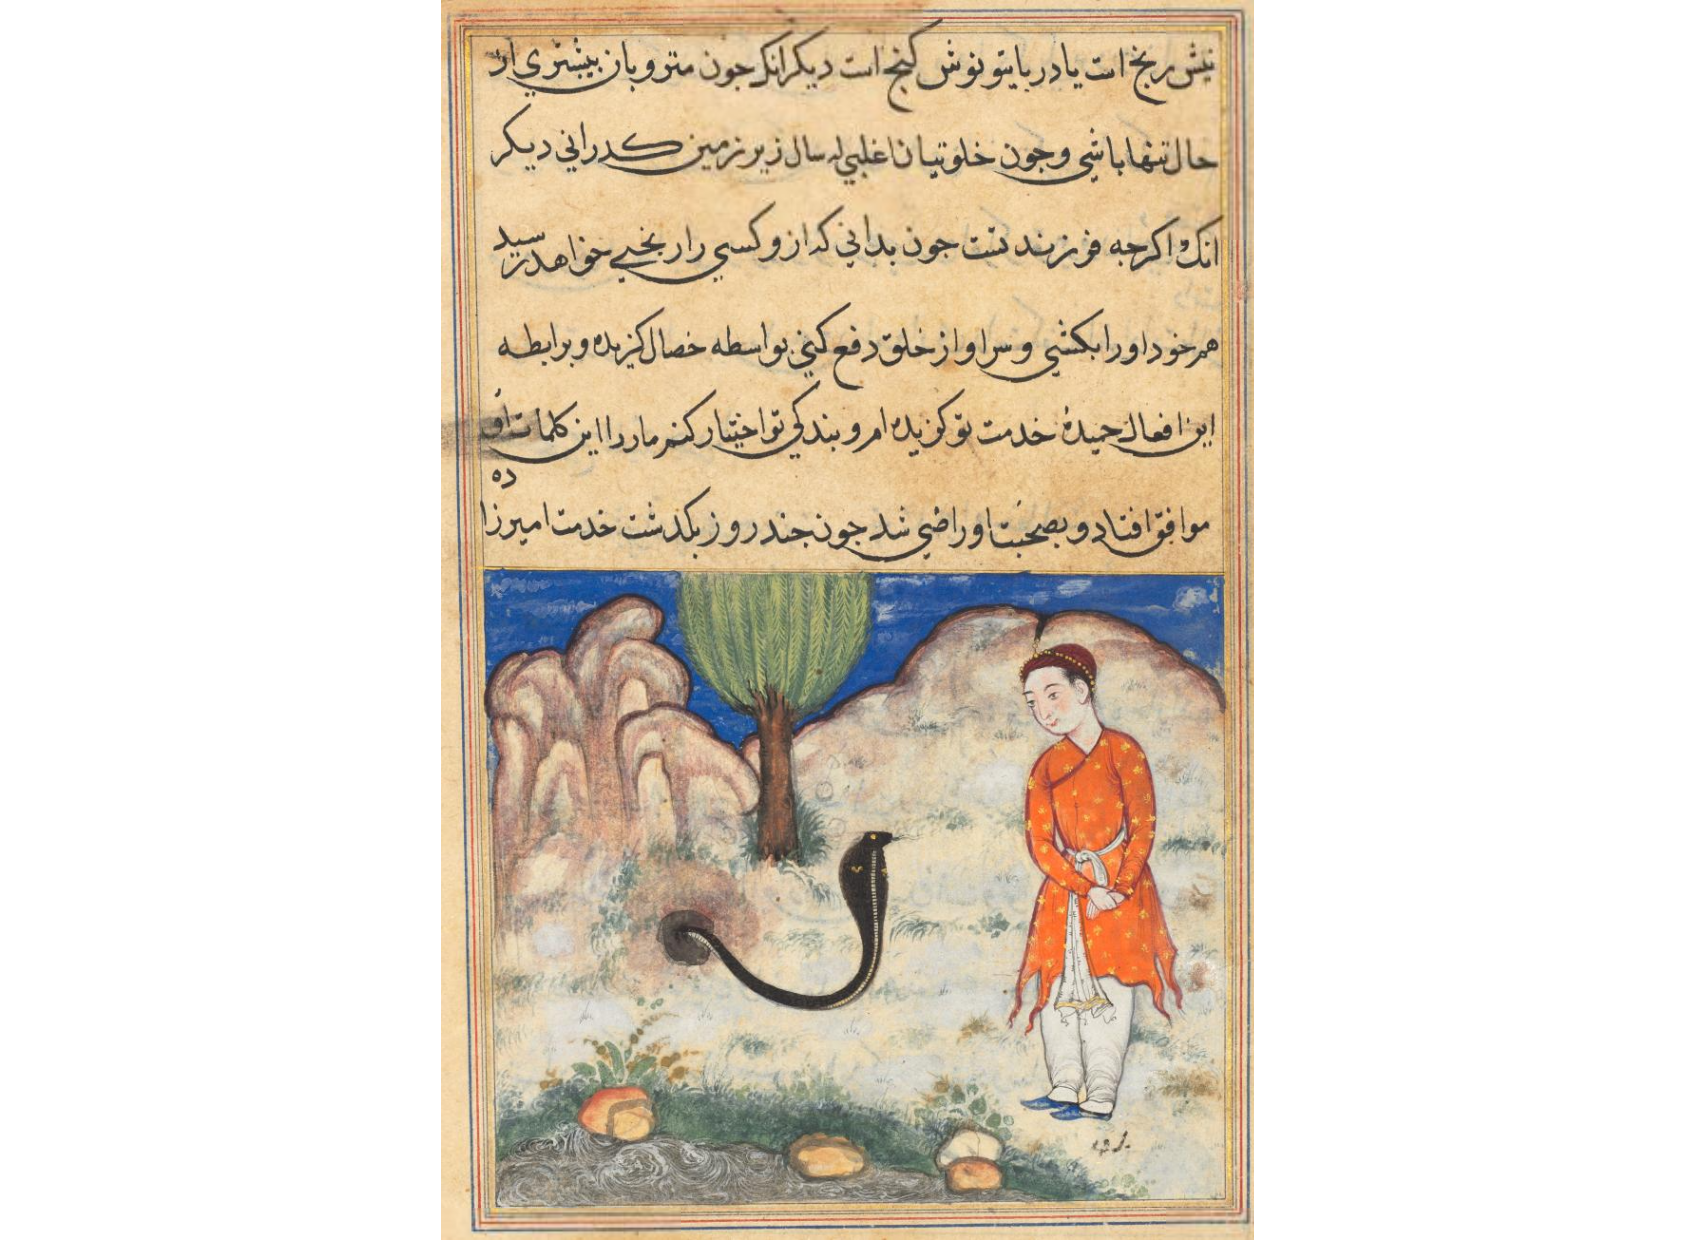 نیش رنج است یا در پایتو نوش کنج است دیکر انک جون متروبان بیشتری از
حال تنها باشی و جون خلوتیان اغلبی له سال زیر زمین کدرانی دیکر
انک و اکرجه فرزند تست جون بدانی که ازو کسی را رنجی خواهد رسید
هم خود او را بکشی و سر او از خلق دفع کنی بواسطه خصال کزیده و برابطه
این افعال حمیده خدمت تو کزیده ام و بندکی تو اختیار کنم مار را این کلمات او
ده
موافق افتاد و بصحبت او راضی شد جون جند روز بکذشت خدمت امیر زا